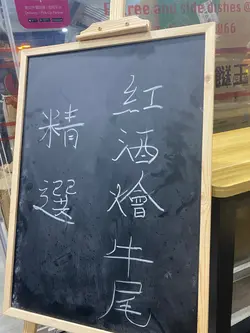 紅酒燴牛尾
精選
ree and side dishes @